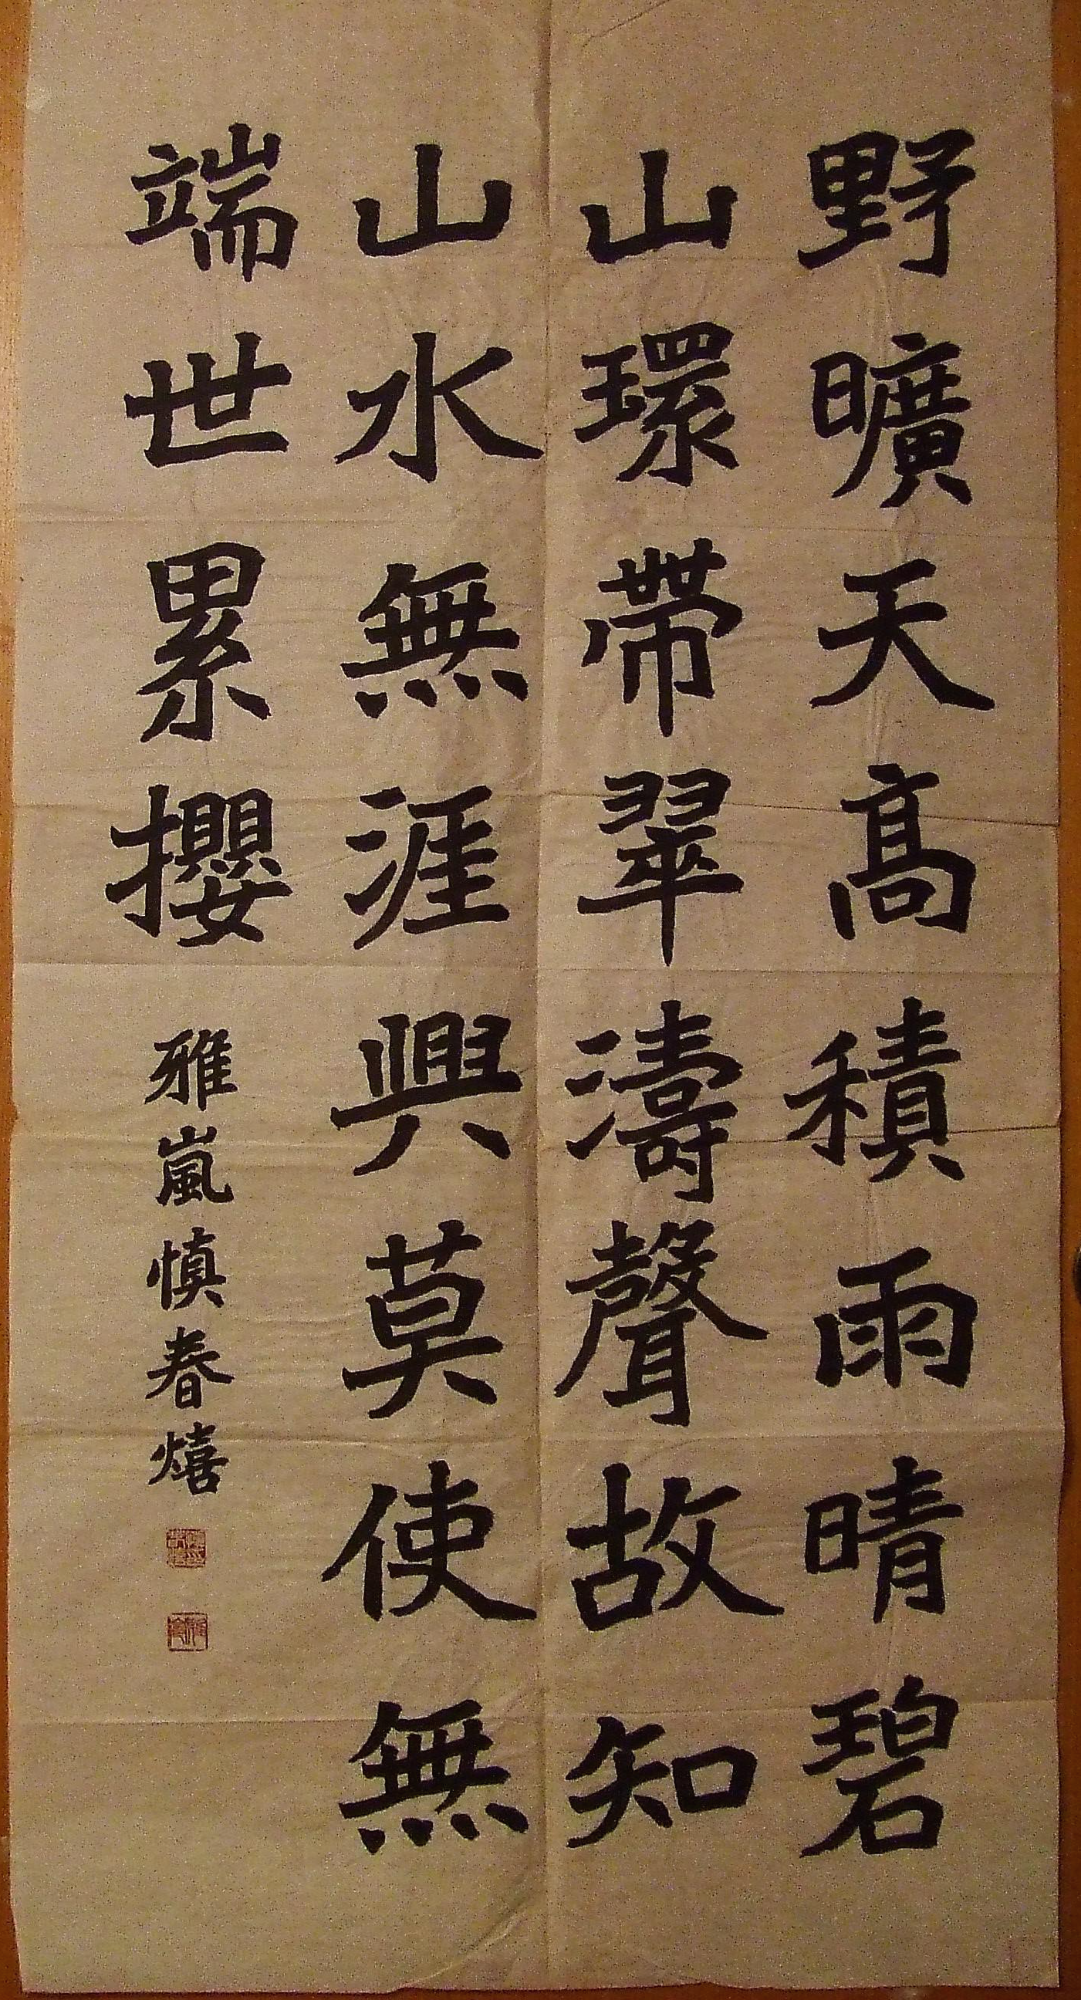 野曠天高積雨晴碧
山環帶翠濤聲故知
山水無涯興莫使無
端世累攖
雅嵐慎春熺